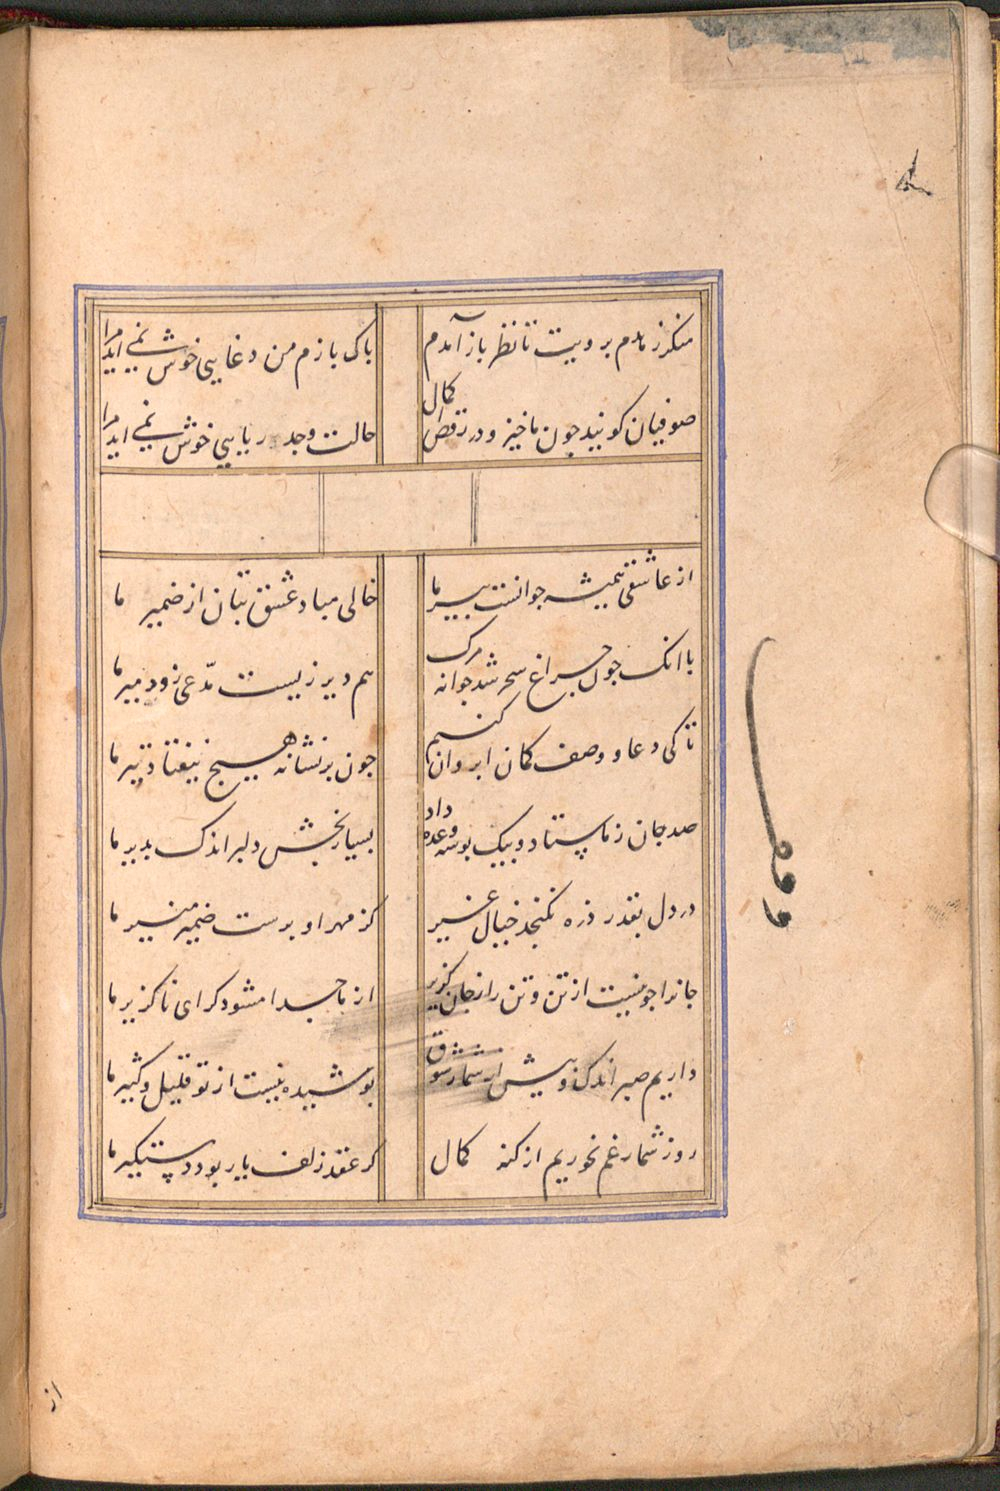 منکرز ندم برویت تا نظر باز آمدم
باک بازم من دغایی خوش نمی اید مرا
صوفیان کویند جون ما خیز و در رقص کمال
حالت وجد ربابی خوش نمی اید مرا
از عاشقی همیشه جوانست پیر ما
خالی مباد عشق بتان از ضمیر ما
با انک جون چراغ سحر شد جوانه مرک
هم دیر زیست مدعی زود میر ما
تا کی دعا و وصف کمان ابروان کنیم
جون بر نشانه هیچ نیفتاد تیر ما
صد جان زما ستاد و بیک بوسه وعده داد
بسیار بخش دلبر اندک بذیر ما
در دل بقدر ذره نکنجد خیال غیر
کز مهر او برست ضمیر منیر ما
جانرا جو نیست از تن و تن را ز جان کزیر
از ما جدا مشو دکر ای ناکزیر ما
داریم صبر اندک و بیش از شمار شوق
بوشیده نیست از تو قلیل و کثیر ما
روز شمار غم نخوریم از کنه کمال
کر عقد زلف یار بود دستکیر ما
از